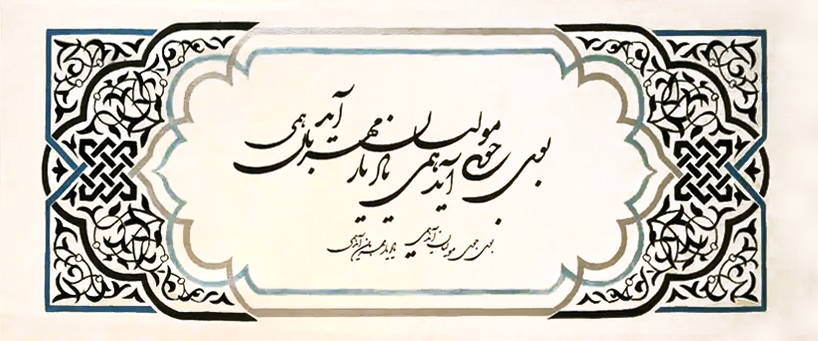 بوی جوی مولیان آید همی یاد یار مهربان آید همی
بوی جوی مولیان آید همی یاد یار مهربان آید همی